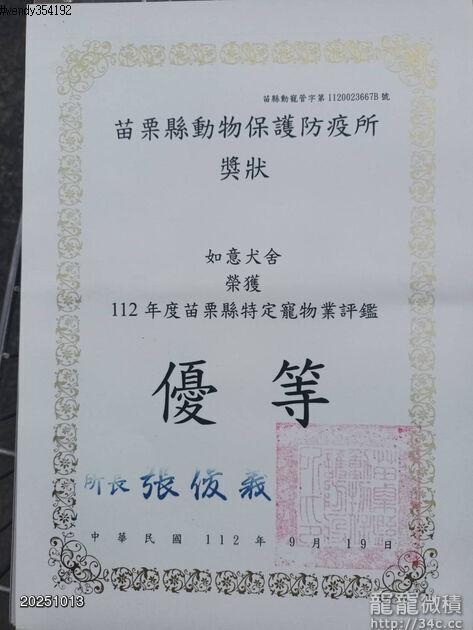 #wendy354192
苗縣動寵管字第1120023667B號
苗栗縣動物保護防疫所
獎狀
如意犬舍
榮獲
112年度苗栗縣特定寵物業評鑑
優等
所長 張俊義
中華民國 112 年 9 月 19 日
20251013
龍龍微積
http://34c.cc